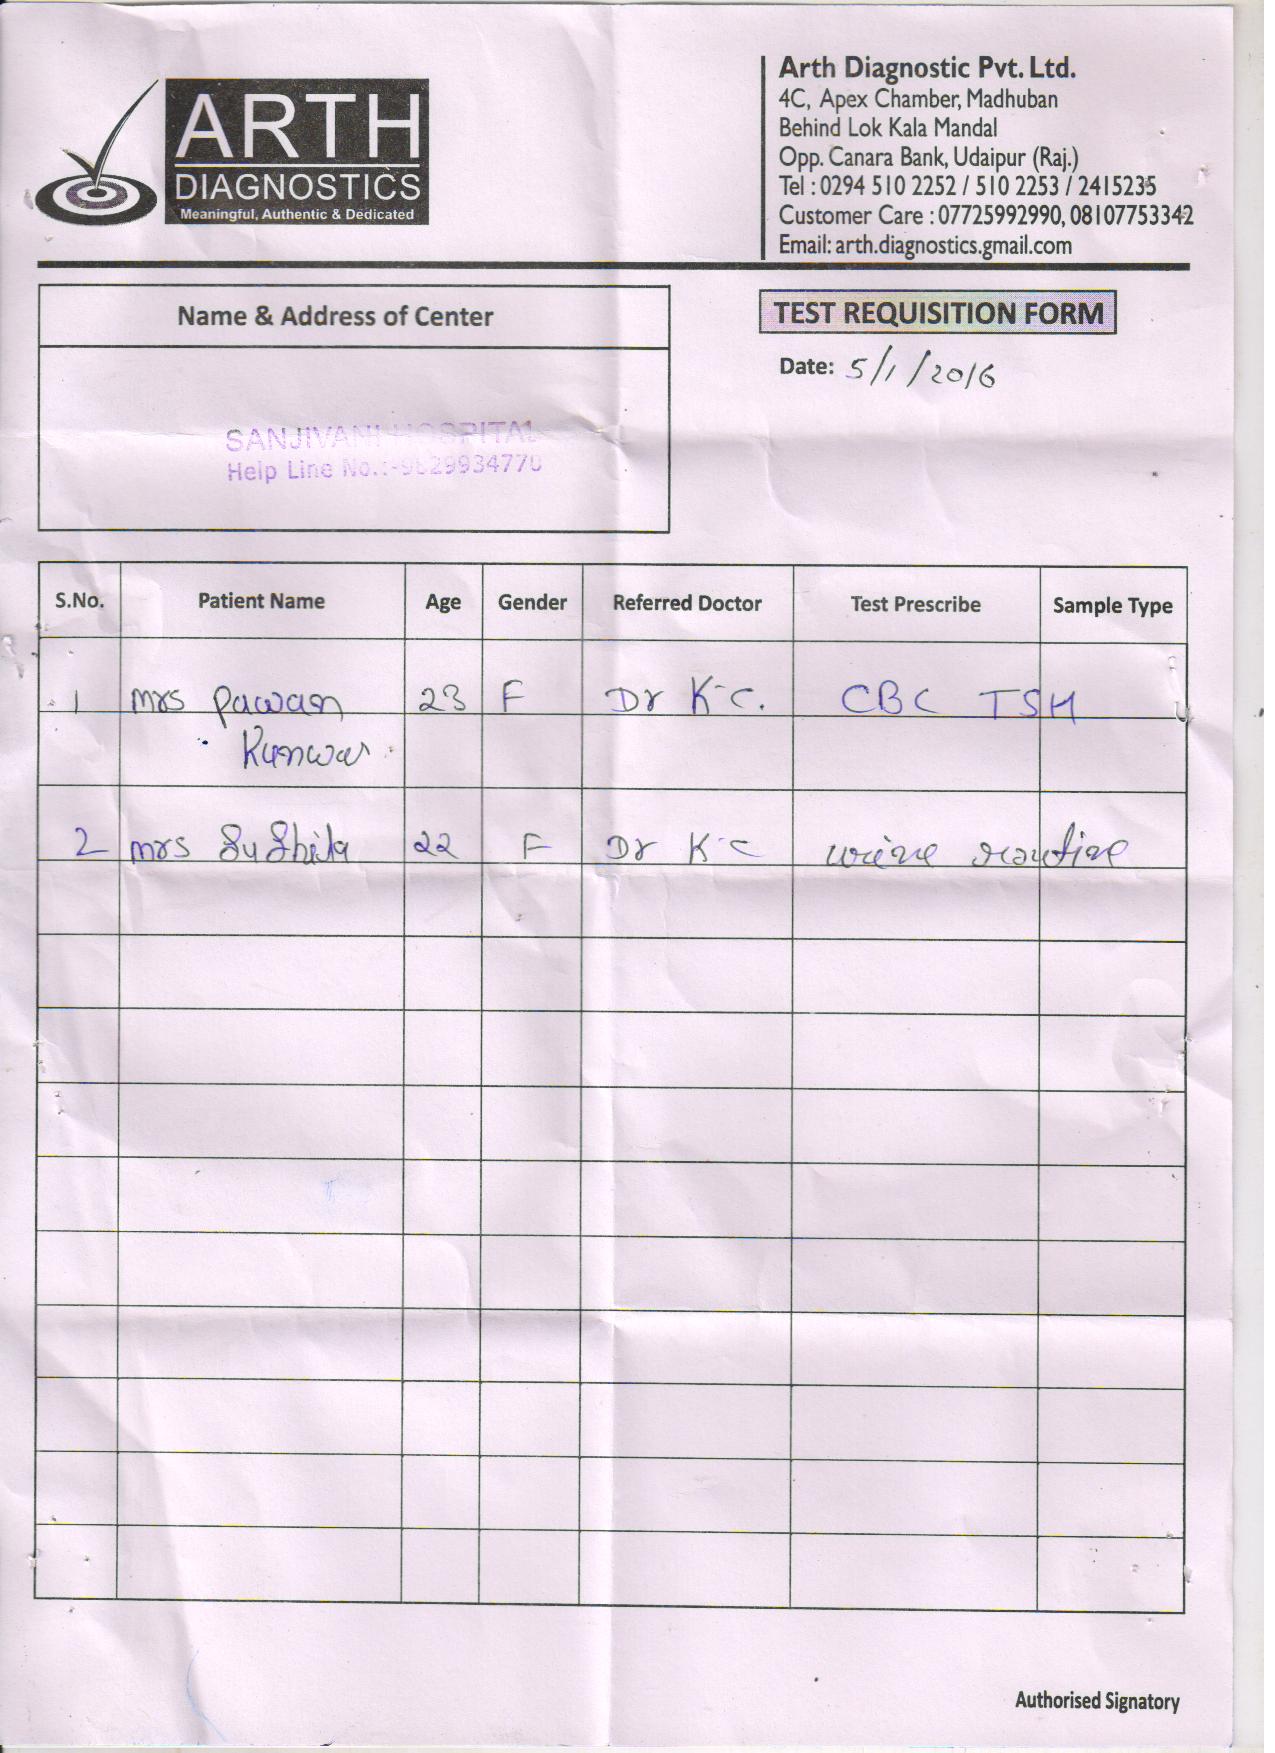 ARTH
DIAGNOSTICS
Meaningful, Authentic & Dedicated
Arth Diagnostic Pvt. Ltd.
4C, Apex Chamber, Madhuban
Behind Lok Kala Mandal
Opp. Canara Bank, Udaipur (Raj.)
Tel : 0294 510 2252 / 510 2253 / 2415235
Customer Care : 07725992990, 08107753342
Email: arth.diagnostics.gmail.com
Name & Address of Center
TEST REQUISITION FORM
Date: 5/1/2016
SANJIVANI HOSPITAL
Help Line No.:-
S.No. Patient Name Age Gender Referred Doctor Test Prescribe Sample Type
1 mrs pawan 23 F Dr K C. CBC TSH
Kunwar
2 mrs 22 F Dr K C urine routine
Authorised Signatory